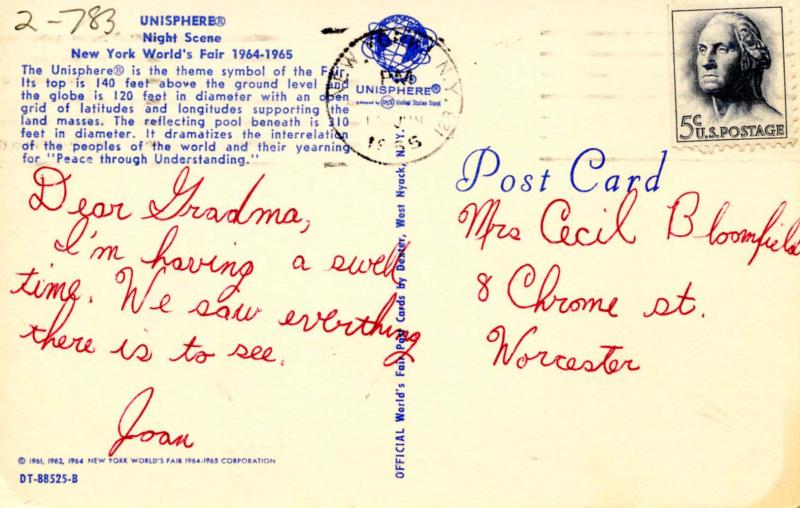 2-783
UNISPHERE®
Night Scene
New York World's Fair 1964-1965
The Unisphere® is the theme symbol of the F
Its top is 140 feet above the ground level and
the globe is 120 feet in diameter with an open
grid of latitudes and longitudes supporting the
land masses. The reflecting pool beneath is 310
feet in diameter. It dramatizes the interrelation
of the peoples of the world and their yearning
for "Peace through Understanding."
Dear Gradma,
I'm having a swell
time. We saw everthing
there is to see.
Joan
© 1961, 1962, 1964 NEW YORK WORLD'S FAIR 1964-1965 CORPORATION
DT-88525-B
NEW YORK, N.Y.
PM
JUN
UNISPHERE®
presented by USS United States Steel
OFFICIAL World's Fair Post Cards by Dexter, West Nyack, N.Y.
5c U.S. POSTAGE
Post Card
Mrs Cecil Bloomfield
8 Chrome st.
Worcester